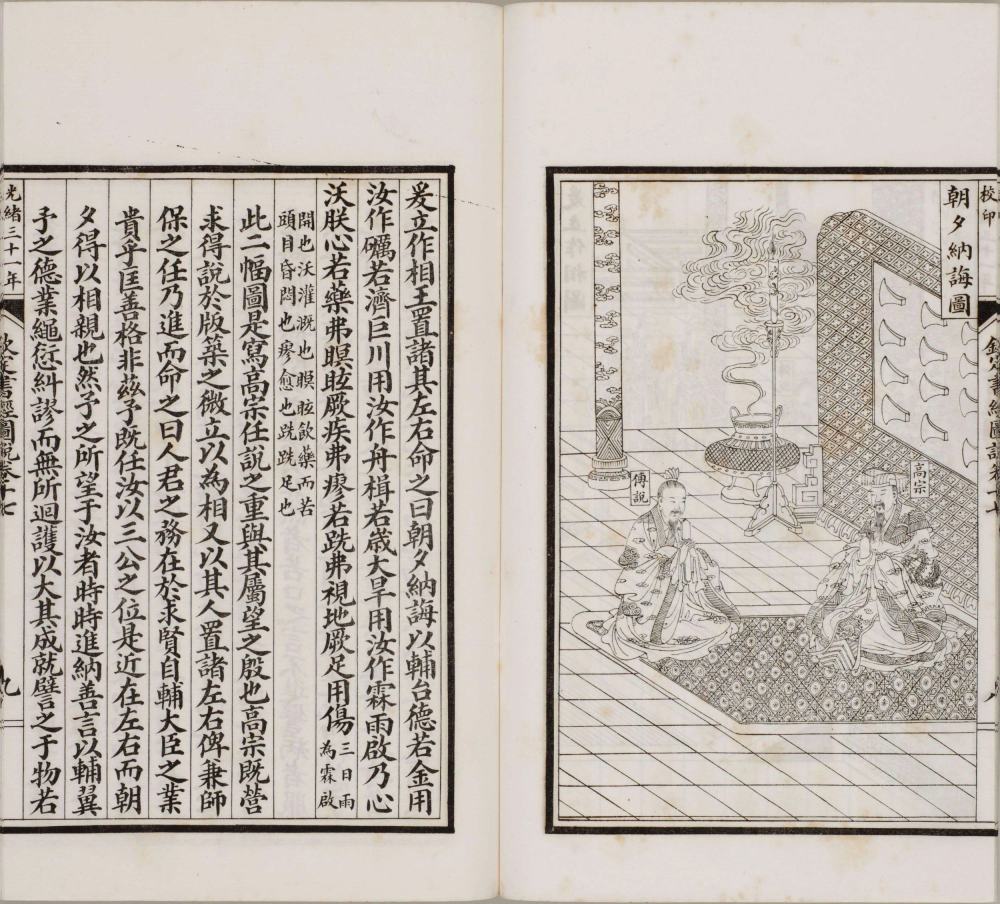 校印
欽定書經圖說卷十七
八
朝夕納誨圖
高宗
傅說
爰立作相王置諸其左右命之曰朝夕納誨以輔台德若金用
汝作礪若濟巨川用汝作舟楫若歲大旱用汝作霖雨啟乃心
沃朕心若藥弗瞑眩厥疾弗瘳若跣弗視地厥足用傷
三日雨
為霖啟
開也沃灌溉也瞑眩飲藥而若
頭目昏悶也瘳愈也跣跣足也
此二幅圖是寫高宗任說之重與其屬望之殷也高宗既營
求得說於版築之微立以為相又以其人置諸左右俾兼師
保之任乃進而命之曰人君之務在於求賢自輔大臣之業
貴乎匡善格非茲予既任汝以三公之位是近在左右而朝
夕得以相親也然予之所望于汝者時時進納善言以輔翼
予之德業繩愆糾謬而無所迴護以大其成就譬之于物若
光緒三十一年
欽定書經圖說卷十七
九